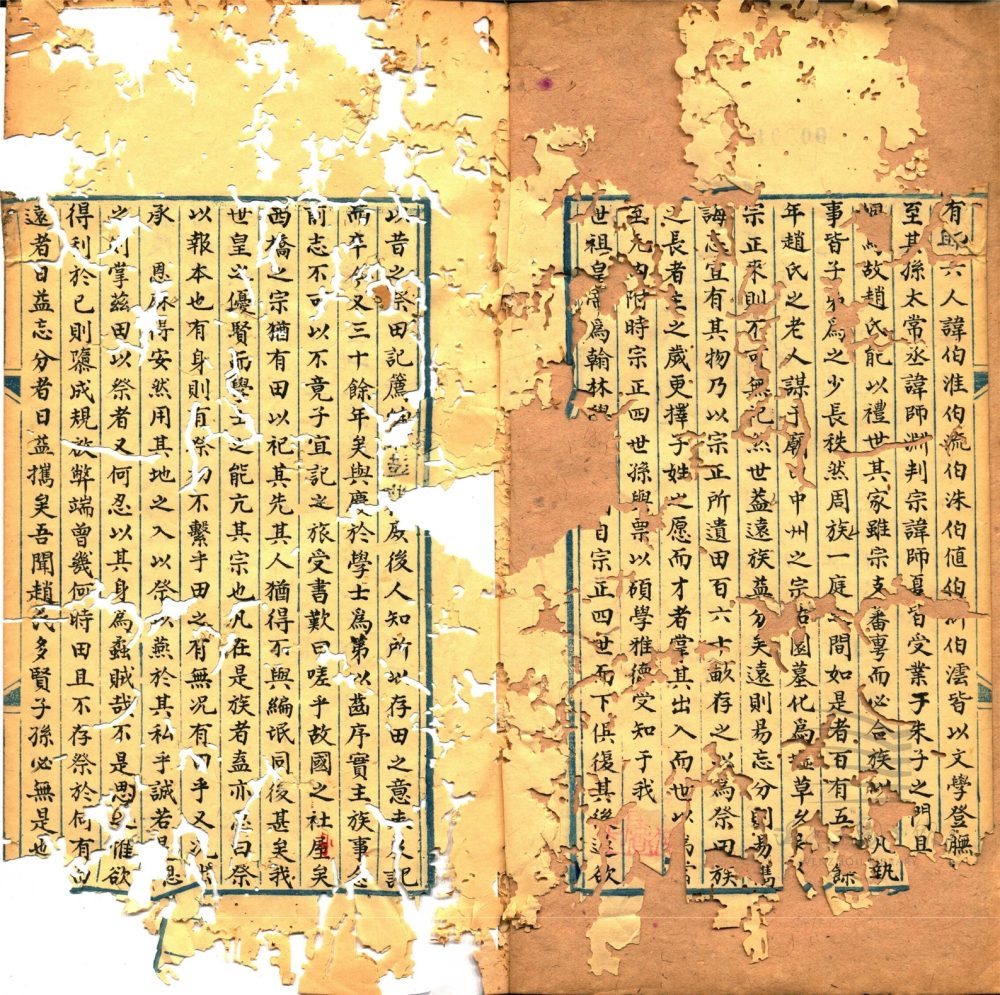 有 六人諱伯淮伯流伯洙伯値伯 伯澐皆以文學登
至其孫太常丞諱師淵判宗諱師夏皆受業于朱子之門且
故趙氏能以禮世其家雖宗支蕃 而必合族 凡 
事皆子弟爲之少長秩然周族一庭之間如是者百有五 餘
年趙氏之老人謀于廟曰中州之宗 園墓化爲 草
宗正來則不可無記然世益遠族益 矣遠則易忘分則易
誨 宜有其物乃以宗正所遺田百六十畝存之以爲祭田族
之長者主之歲更擇子姓之愿而才者掌其出入而世以爲
至元内附時宗正四世孫與票以碩學雅德受知于我
世祖皇帝爲翰林 自宗正四世而下俱復其後 欲
以昔之祭田記 後人知所以存田之意 記
而卒 又三十餘年矣與 於學士爲第以齒序實主族事念
前志不可以不竟子宜記之旅受書歎曰嗟乎故國之社屋矣
西橋之宗猶有田以祀其先其人猶得不與編氓同後甚矣我
世皇之優賢而學士之能亢其宗也凡在是族者盍亦 曰祭
以報本也有身則有祭初不繫乎田之有無况有田乎又
承 恩 得安然用其地之入以祭以燕於其私乎誠若是
則掌茲田以祭者又何忍以其身爲蟊賊哉不是思 惟欲
得利於已則隳成規啟弊端曾幾何時田且不存祭於何有
遠者日益忘分者日益攜矣吾聞趙氏多賢子孫必無是也